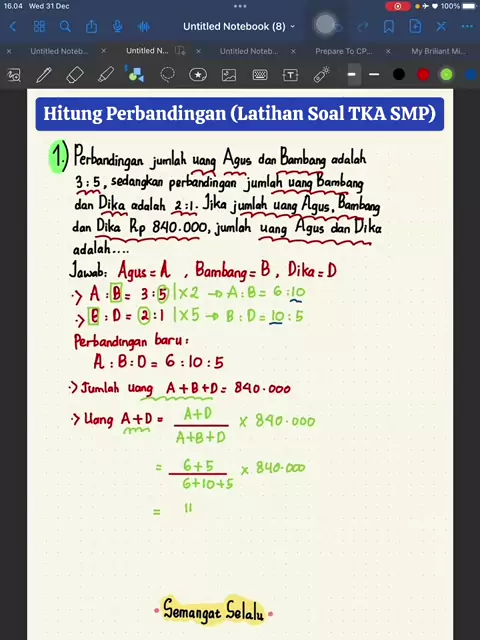 16.04 Wed 31 Dec
100%
Untitled Notebook (8)
Untitled Noteb...
Untitled N...
Untitled Noteb...
Prepare To CP...
My Briliant Mi...
Hitung Perbandingan (Latihan Soal TKA SMP)
1.) Perbandingan jumlah uang Agus dan Bambang adalah
3:5, sedangkan perbandingan jumlah uang Bambang
dan Dika adalah 2:1. Jika jumlah uang Agus, Bambang
dan Dika Rp 840.000, jumlah uang Agus dan Dika
adalah....
Jawab: Agus = A , Bambang = B, Dika = D
·> A : B = 3 : 5 | ×2 → A : B = 6 : 10
·> B : D = 2 : 1 | ×5 → B : D = 10 : 5
Perbandingan baru:
A : B : D = 6 : 10 : 5
·> Jumlah uang A+B+D = 840.000
·> Uang A+D = A+D / A+B+D × 840.000
= 6+5 / 6+10+5 × 840.000
= 11
• Semangat Selalu •